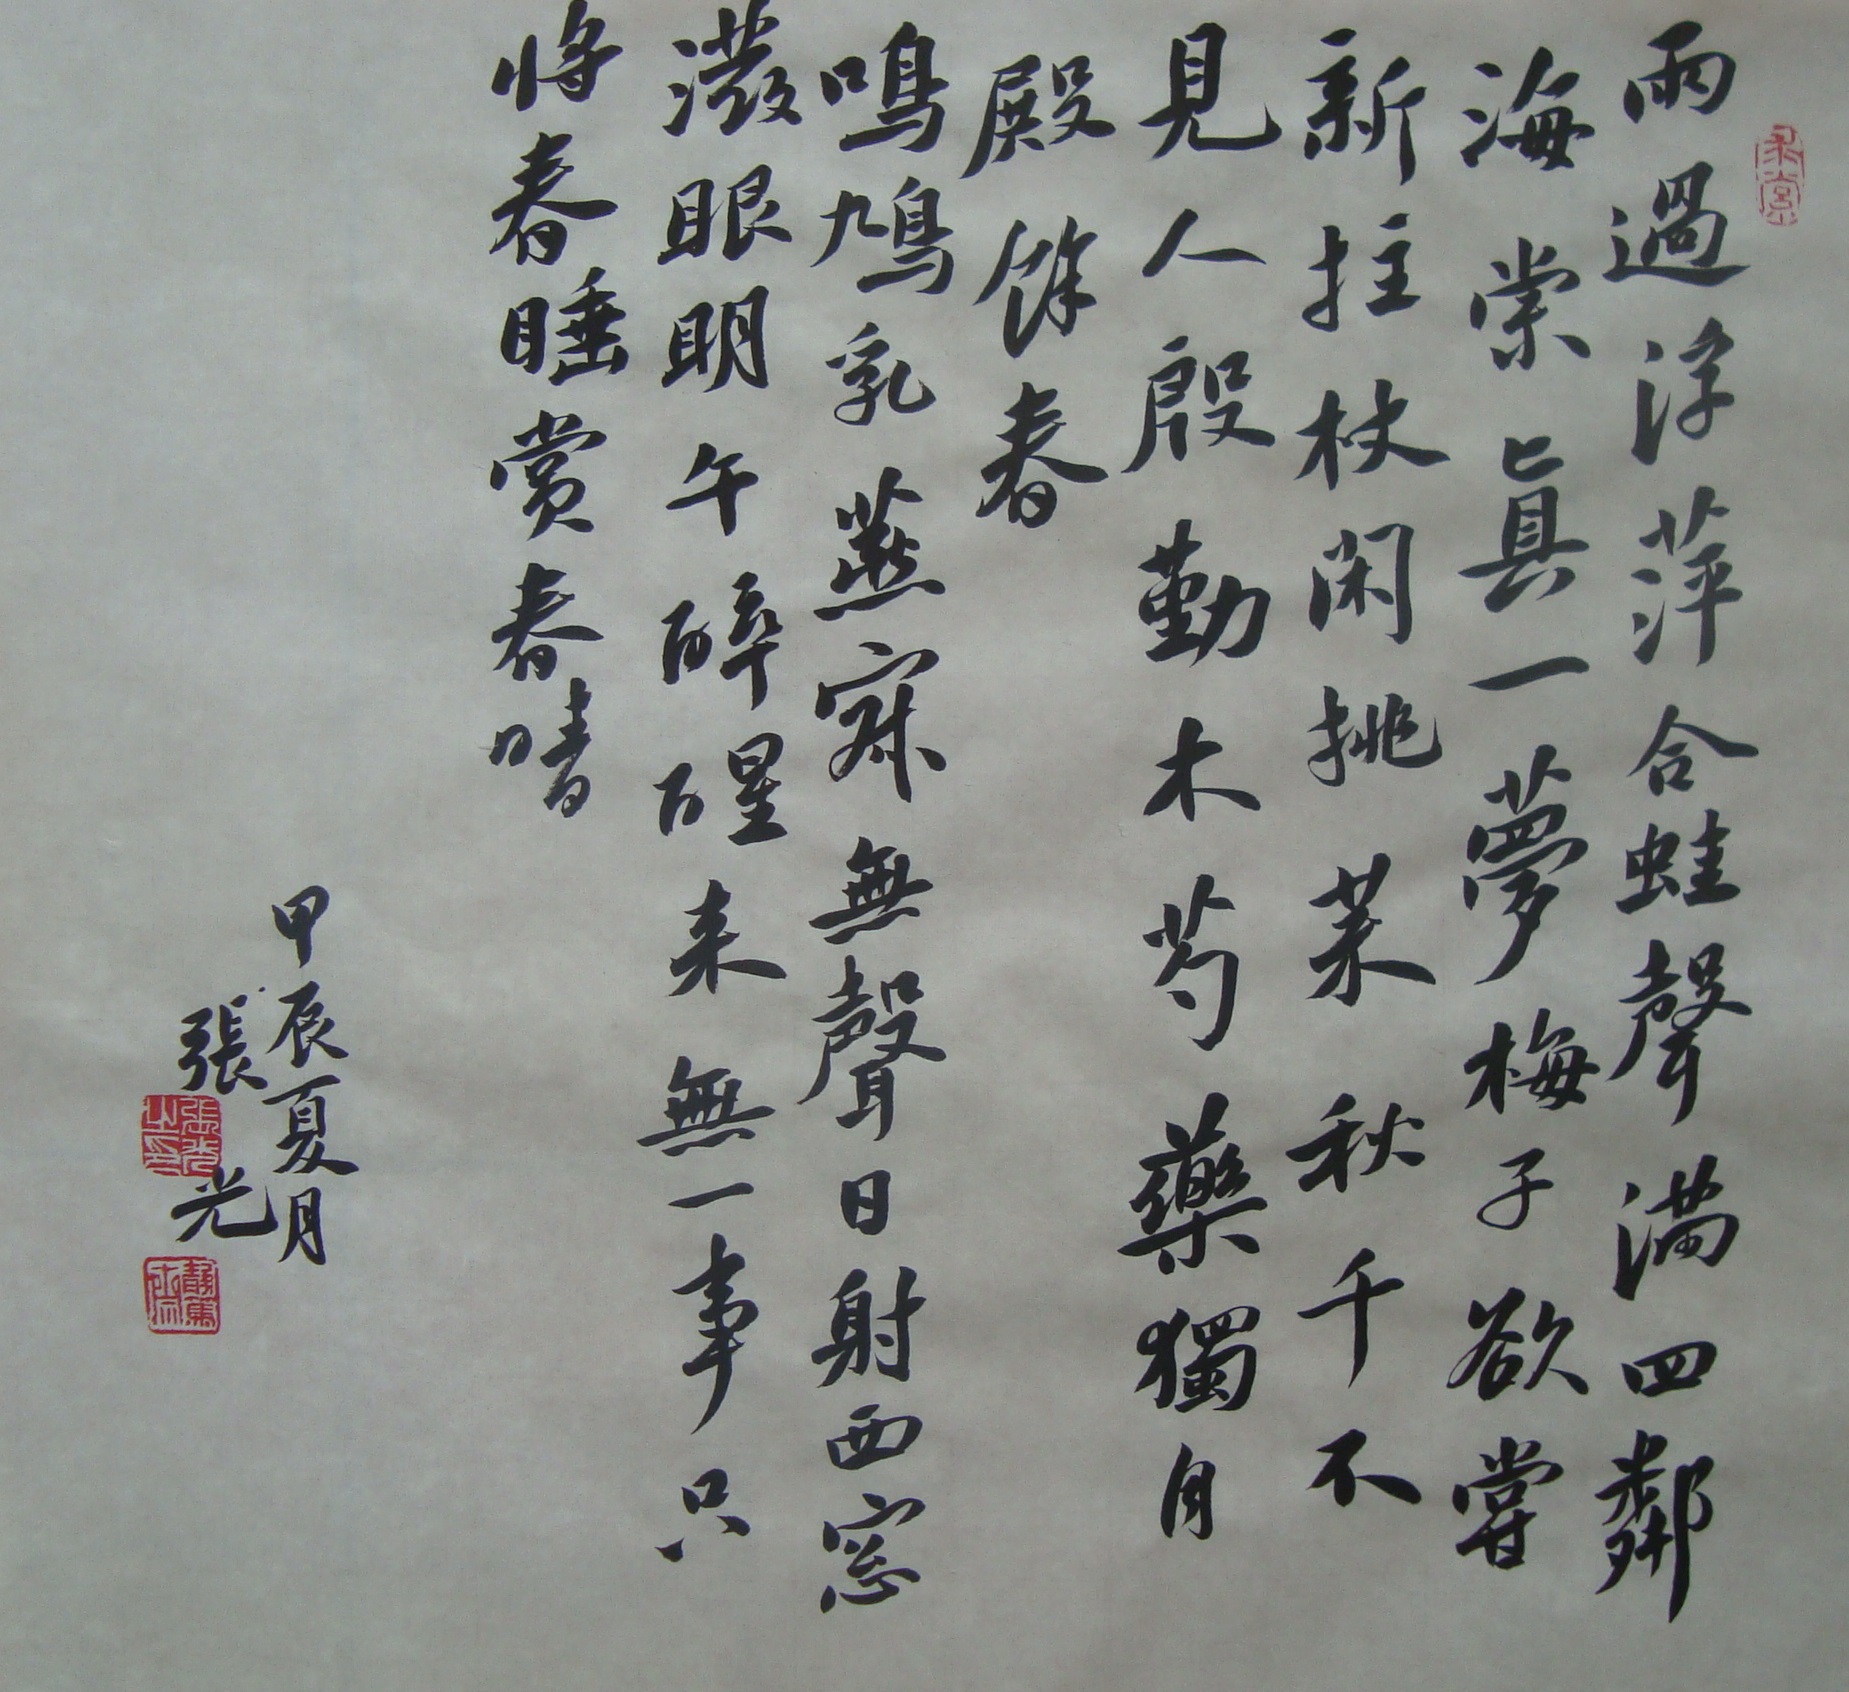 雨過浮萍合蛙聲滿四鄰
海棠眞一夢梅子欲嘗
新拄杖閑挑菜秋千不
見人殷勤木芍藥獨自
殿餘春
鳴鳩乳燕寂無聲日射西窓
潑眼明午醉醒来無一事只
将春睡赏春晴
甲辰夏月
張光
張光之印